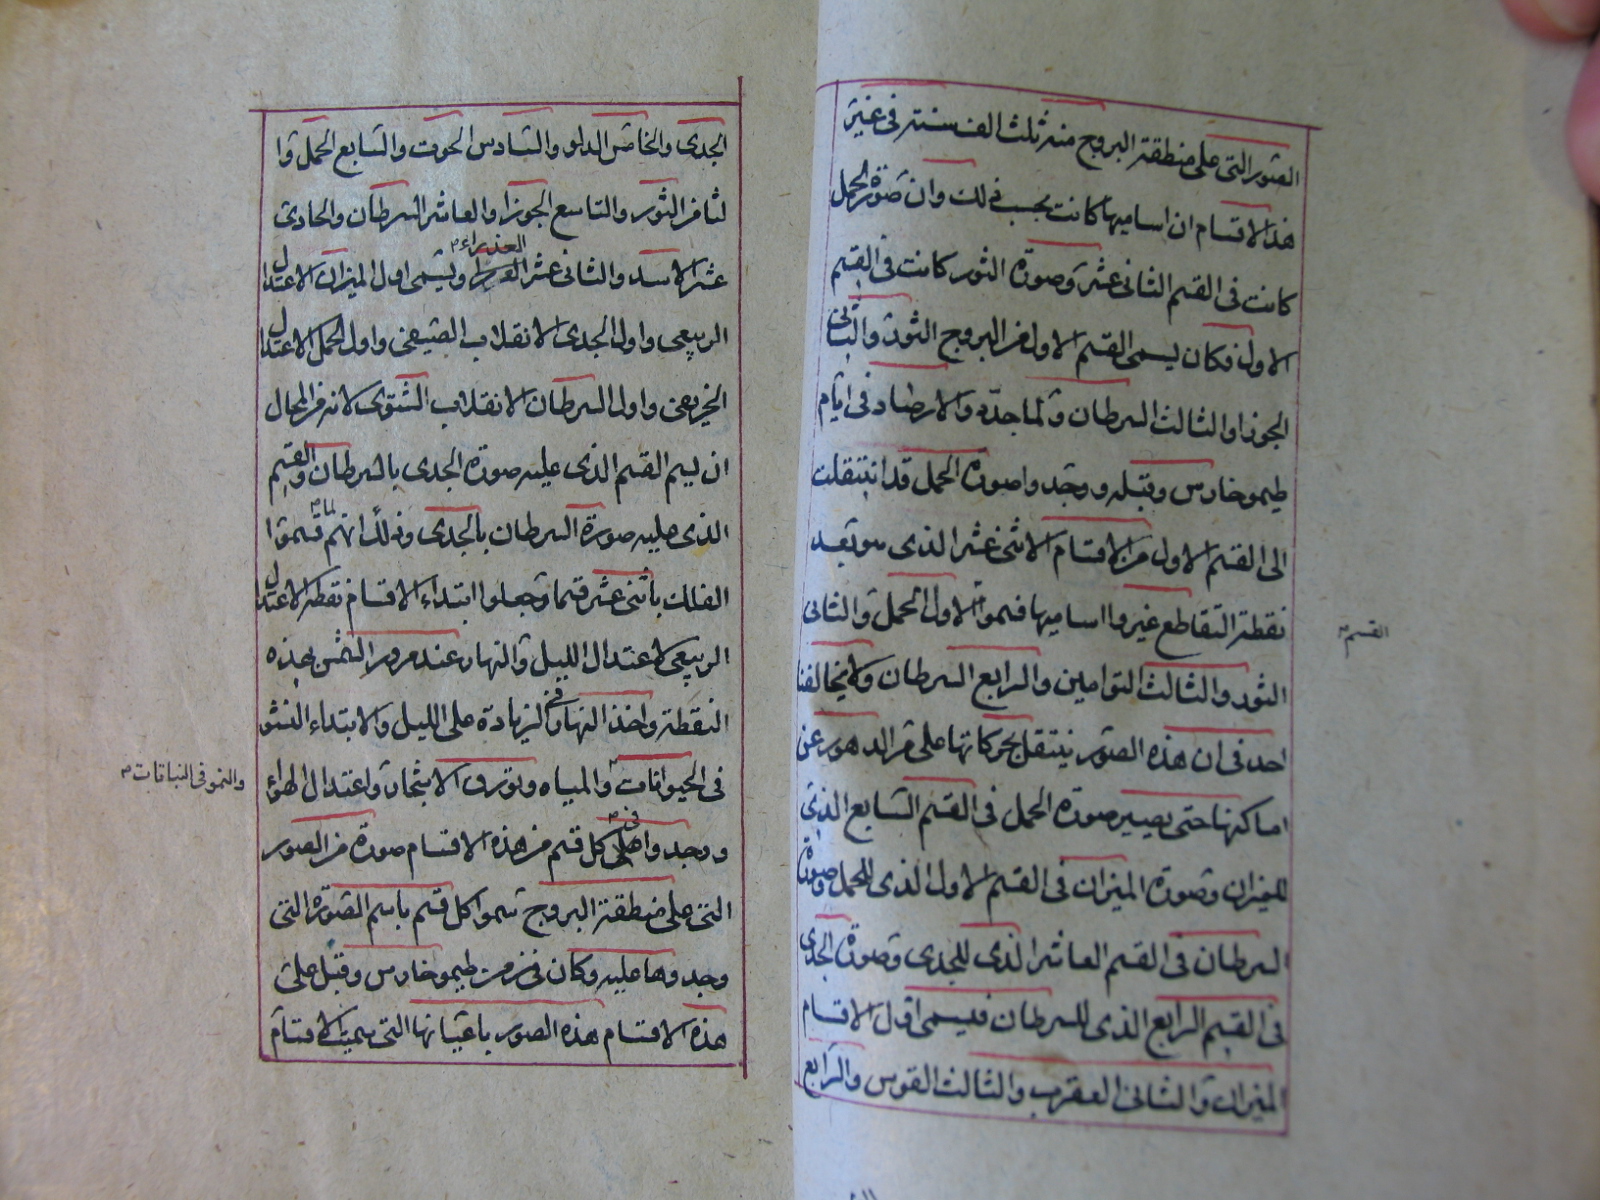 الصور التى على منطقة البروج منذ ثلث الف سنة فى غير
هذا الاقسام ان اساميها كانت بحسب ذلك وان صورة الحمل
كانت فى القسم الثانى عشر وصورة الثور كانت فى القسم
الاول فكان يسمى القسم الاول من البروج الثور والثانى
الجوزا والثالث السرطان ولما جدّد والارصاد فى ايّام
طيموخارس وقبله ووجد واصورة الحمل قد انتقلت
الى القسم الاول من الاقسام الاثنى عشر الذى هو بعد
نقطة التقاطع غير وا اساميها فسموا الاول الحمل والثانى
الثور والثالث التوامين والرابع السرطان ولا يخالفنا
احد فى ان هذه الصور ينتقل بحركاتها على مر الدهور عن
اماكنها حتى يصير صورة الحمل فى القسم السابع الذى
للميزان وصورة الميزان فى القسم الاول الذى للحمل وصورة
السرطان فى القسم العاشر الذى للجدى وصورة الجدى
فى القسم الرابع الذى للسرطان فيسمى اول الاقسام
الميزان والثانى العقرب والثالث القوس والرابع
القسم
الجدى والخامس الدلو والسادس الحوت والسابع الحمل وا
لثامن الثور والتاسع الجوزا والعاشر السرطان والحادى
العذراء
عشر الاسد والثانى عشر ويسمى اول الميزان الاعتدال
الربيعى واول الجدى الانقلاب الصيفى واول الحمل الاعتدال
الخريفى واول السرطان الانقلاب الشتوى لانه من المحال
ان يسم القسم الذى عليه صورة الجدى بالسرطان والقسم
الذى عليه صورة السرطان بالجدى وذلك انهم لما قسموا
الفلك باثنى عشر قسما وجعلوا ابتداء الاقسام نقطة الاعتدال
الربيعى لاعتدال الليل والنهار عند مرور الشمس بهذه
النقطة واخذ النهار فى الزيادة على الليل والابتداء النشو
فى الحيوانات والمياه وتورق الاشجار واعتدال الهواء
والنمو فى النباتات
ووجدوا فى كل قسم من هذه الاقسام صورة من الصور
التى على منطقة البروج سموا كل قسم باسم الصورة التى
وجدوها عليه وكان فى زمن طيموخارس وقبل على
هذه الاقسام هذه الصور باعيانها التى سميت الاقسام